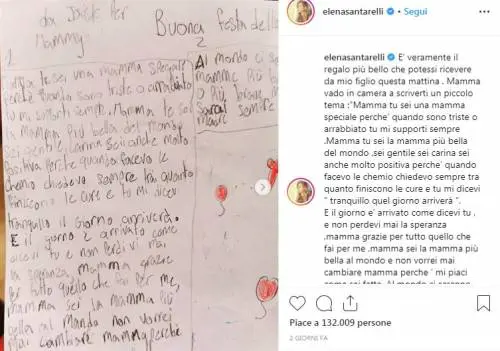 da Jack per
Mammy
Buona festa della
1
2
mamma te sei una mamma speciale
perché quando sono triste o arrabbiato
tu mi supporti sempre. Mamma te sei
la mamma più bella del mondo
sei gentile, carina sei anche molto
positiva perche quando facevo le
chemio chiedevo sempre tra quanto
finiscono le cure e tu mi dicevi
tranquillo il giorno arriverà.
E il giorno è arrivato come
dicevi tu e non perdi vi mai
la speranza mamma grazie
per tutto quello che fai per me,
mamma sei la mamma più
bella al mondo non vorrei
mai cambiare mamma perche
Al mondo ci s
mamme più b
o più
sarai
mare
elenasantarelli • Segui
elenasantarelli E' veramente il
regalo più bello che potessi ricevere
da mio figlio questa mattina . Mamma
vado in camera a scriverti un piccolo
tema :"Mamma tu sei una mamma
speciale perche' quando sono triste o
arrabbiato tu mi supporti sempre
.Mamma tu sei la mamma più bella
del mondo .sei gentile sei carina sei
anche molto positiva perche' quando
facevo le chemio chiedevo sempre tra
quanto finiscono le cure e tu mi dicevi
" tranquillo quel giorno arriverà ".
E il giorno e' arrivato come dicevi tu .
e non perdevi mai la speranza
.mamma grazie per tutto quello che
fai per me .mamma sei la mamma più
bella al mondo e non vorrei mai
cambiare mamma perche ' mi piaci
come sei fatta. Al mondo ci saranno
Piace a 132.009 persone
2 GIORNI FA